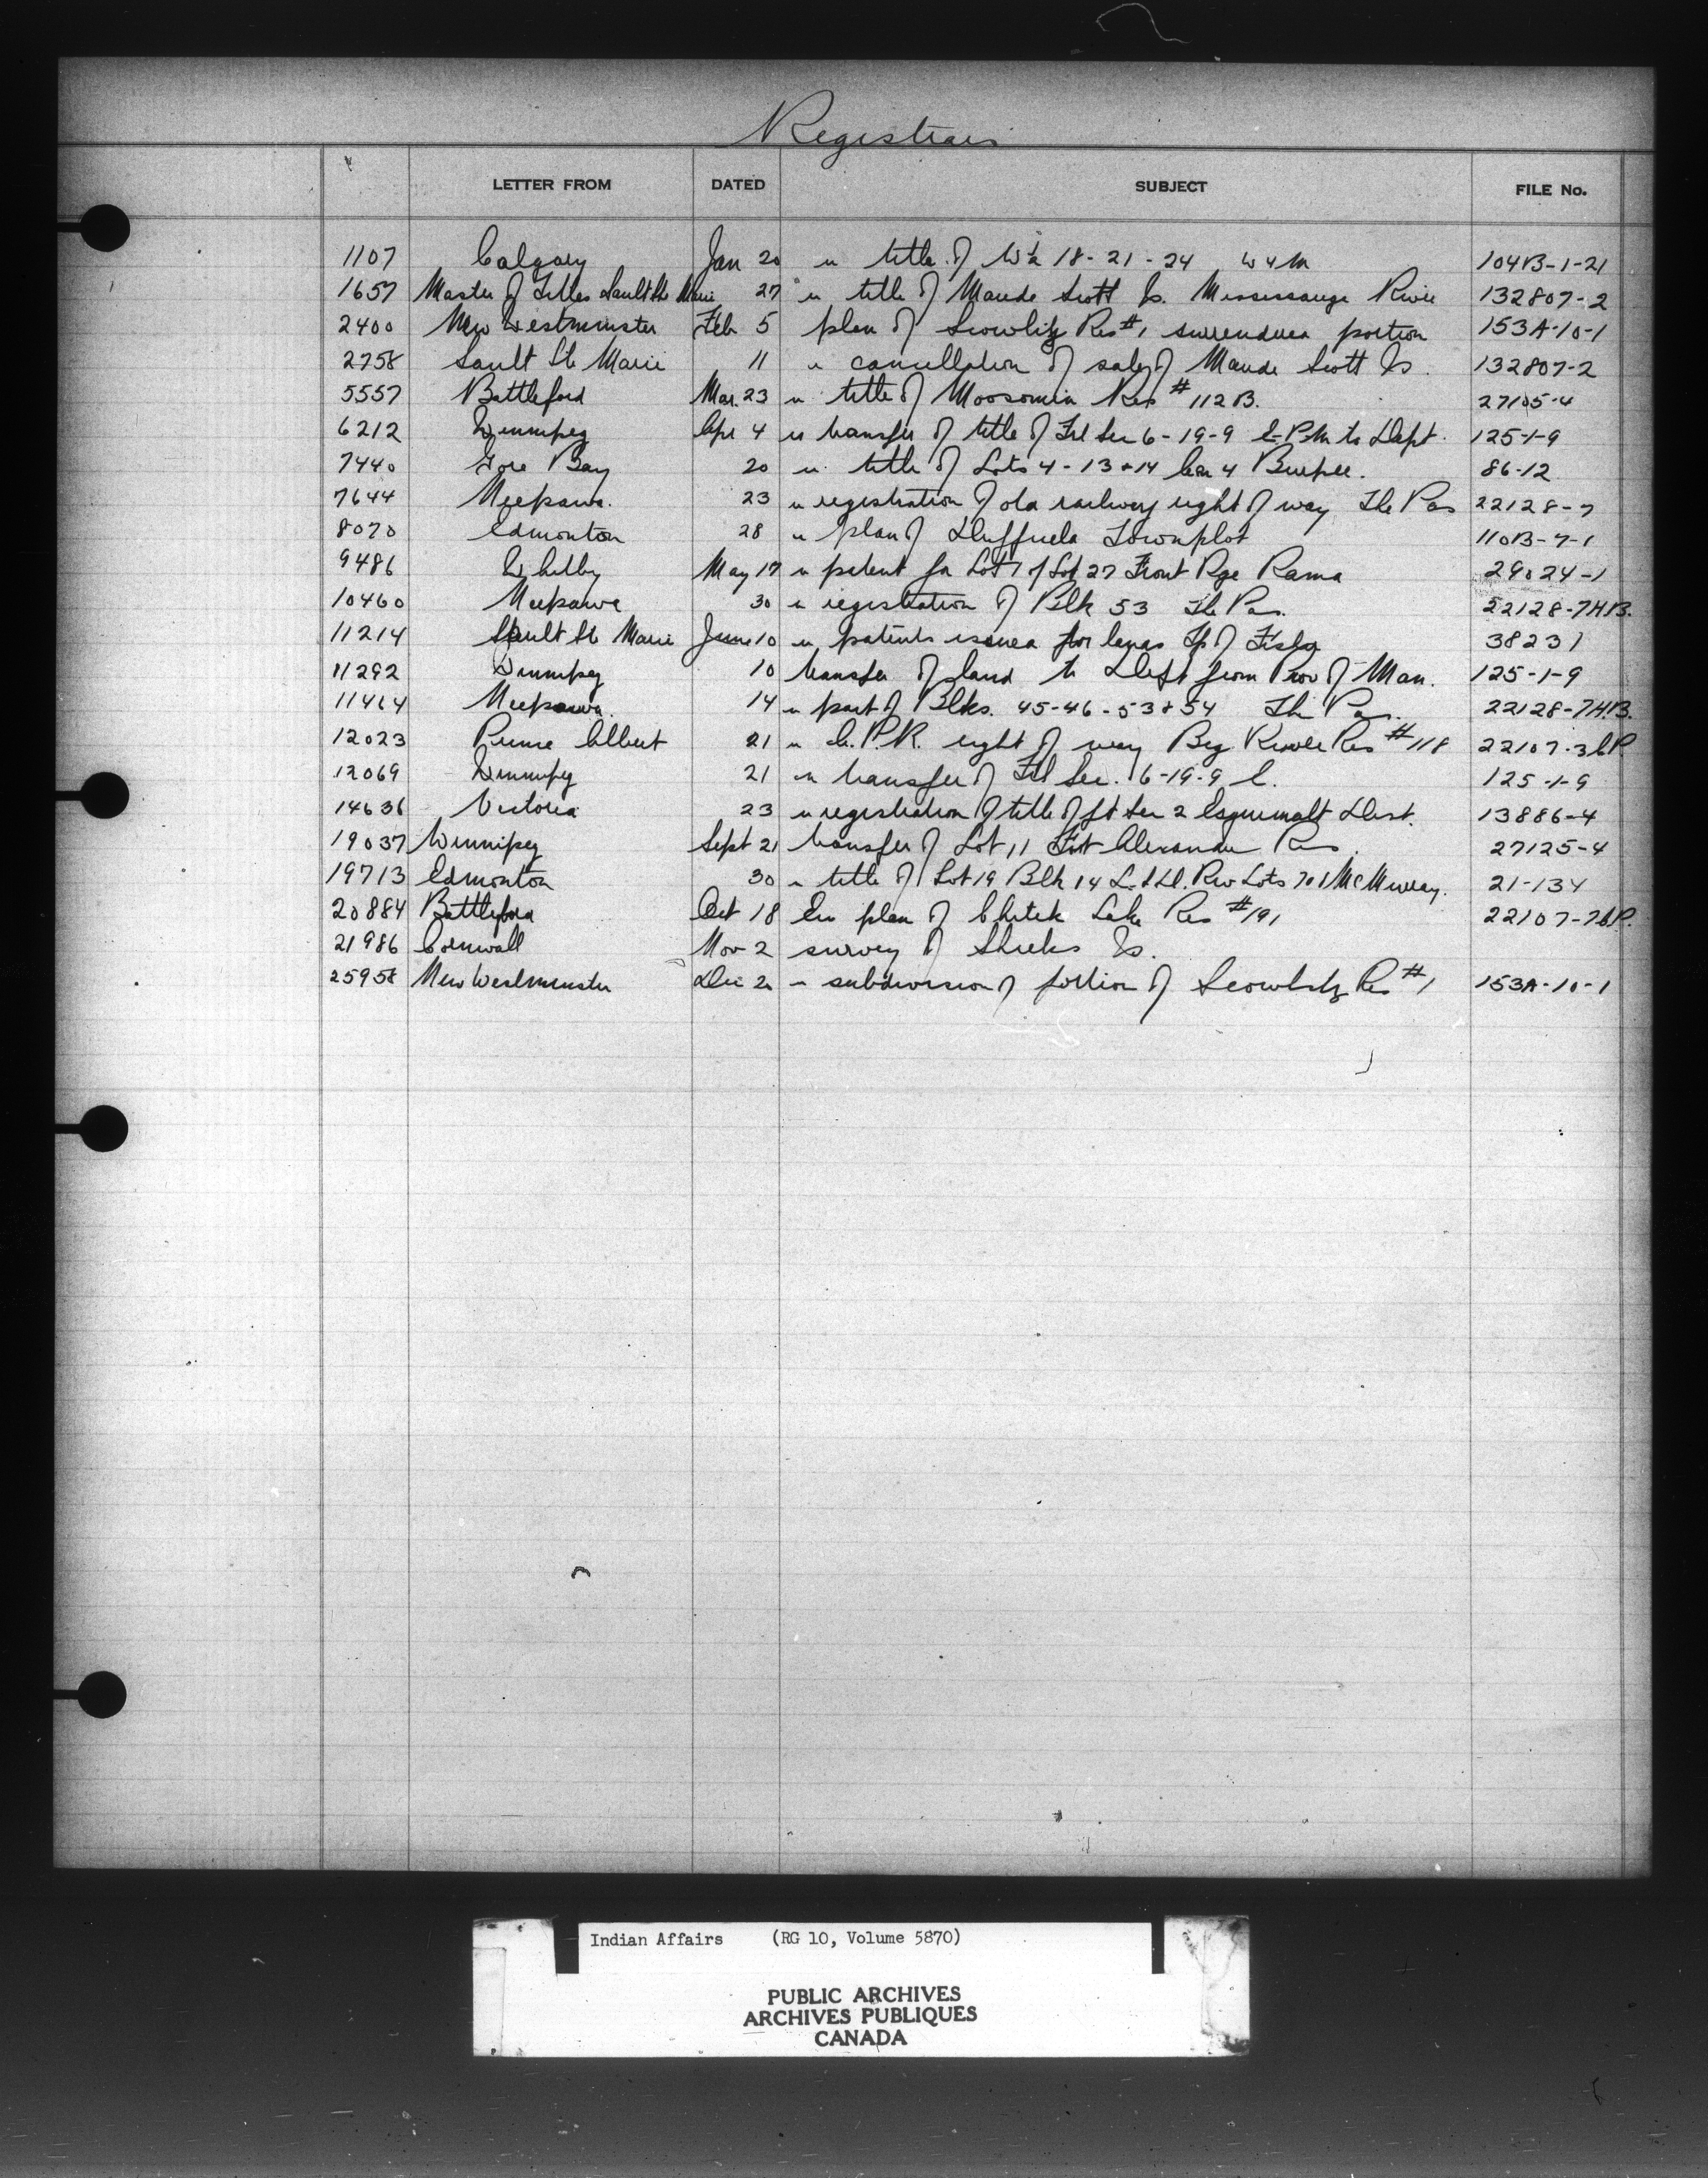 Registrars
LETTER FROM DATED SUBJECT FILE No.
1107 Calgary Jan 20 re title of W½ 18-21-24 W4M 104B-1-21
1657 Master of Titles Sault Ste Marie 27 re title of Maude Scott Is. Mississauga River 132807-2
2400 New Westminster Feb 5 plan of Scowlitz Res #1 surrendered portion 153A-10-1
2758 Sault Ste Marie 11 re cancellation of sale of Maude Scott Is. 132807-2
5557 Battleford Mar. 23 re title of Moosomin Res #112B. 27105-4
6212 Winnipeg Apr 4 re transfer of title of Frl Sec 6-19-9 E.P.M. to Dept. 125-1-9
7440 Gore Bay 20 re title of Lots 4-13+14 Con 4 Burpee. 86-12
7644 Neepawa. 23 re registration of old railway right of way The Pas 22128-7
8070 Edmonton 28 re plan of Duffield Townplot 110B-7-1
9486 Whitby May 17 re patent for Lot 1 of Lot 27 Front Rge Rama 29024-1
10460 Neepawa 30 re registration of Blk 53 The Pas. 22128-7HB.
11214 Sault Ste Marie June 10 re patents issued for lands Tp of Fisher 38231
11292 Winnipeg 10 transfer of land to Dept from Prov of Man. 125-1-9
11464 Neepawa. 14 re part of Blks. 45-46-53+54 The Pas. 22128-7HB.
12023 Prince Albert 21 re C.P.R. right of way Big River Res #118 22107-36P.
12069 Winnipeg 21 re transfer of Frl Sec. 6-19-9 E. 125-1-9
14636 Victoria 23 re registration of title of pt Sec 2 Esquimalt Dist. 13886-4
19037 Winnipeg Sept 21 transfer of Lot 11 Fort Alexander Res. 27125-4
19713 Edmonton 30 re title of Lot 19 Blk 14 Rev Lots 7 of McMurray. 21-134
20884 Battleford Oct 18 plan of Chitek Lake Res #191 22107-76P.
21986 Cornwall Nov 2 survey of Sheeks Is.
25958 New Westminster Dec 2 re subdivision of portion of Scowlitz Res #1 153A-10-1
Indian Affairs (RG 10, Volume 5870)
PUBLIC ARCHIVES
ARCHIVES PUBLIQUES
CANADA